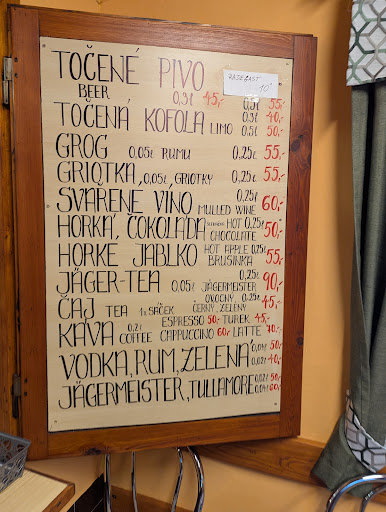 TOČENÉ PIVO RADEGAST 10°
BEER 0,3l 45,- 0,5l 55,-
TOČENÁ KOFOLA LIMO 0,3l 40,- 0,5l 50,-
GROG 0,05l RUMU 0,25l 55,-
GRIOTKA, 0,05l GRIOTKY 0,25l 55,-
SVAŘENÉ VÍNO MULLED WINE 0,25l 60,-
HORKÁ ČOKOLÁDA HOT CHOCOLATE 0,25l 50,-
HORKÉ JABLKO HOT APPLE 0,25l BRUSINKA 55,-
JÄGER-TEA 0,05l JÄGERMEISTER 0,25l 90,-
ČAJ TEA 1x SÁČEK OVOCNÝ, ČERNÝ, ZELENÝ 0,25l 45,-
KÁVA 0,2l COFFEE ESPRESSO 50,- TUREK 45,- CAPPUCCINO 60,- LATTE 70,-
VODKA, RUM, ZELENÁ 0,04l 50,- 0,02l 40,-
JÄGERMEISTER, TULLAMORE 0,02l 50,- 0,04l 60,-